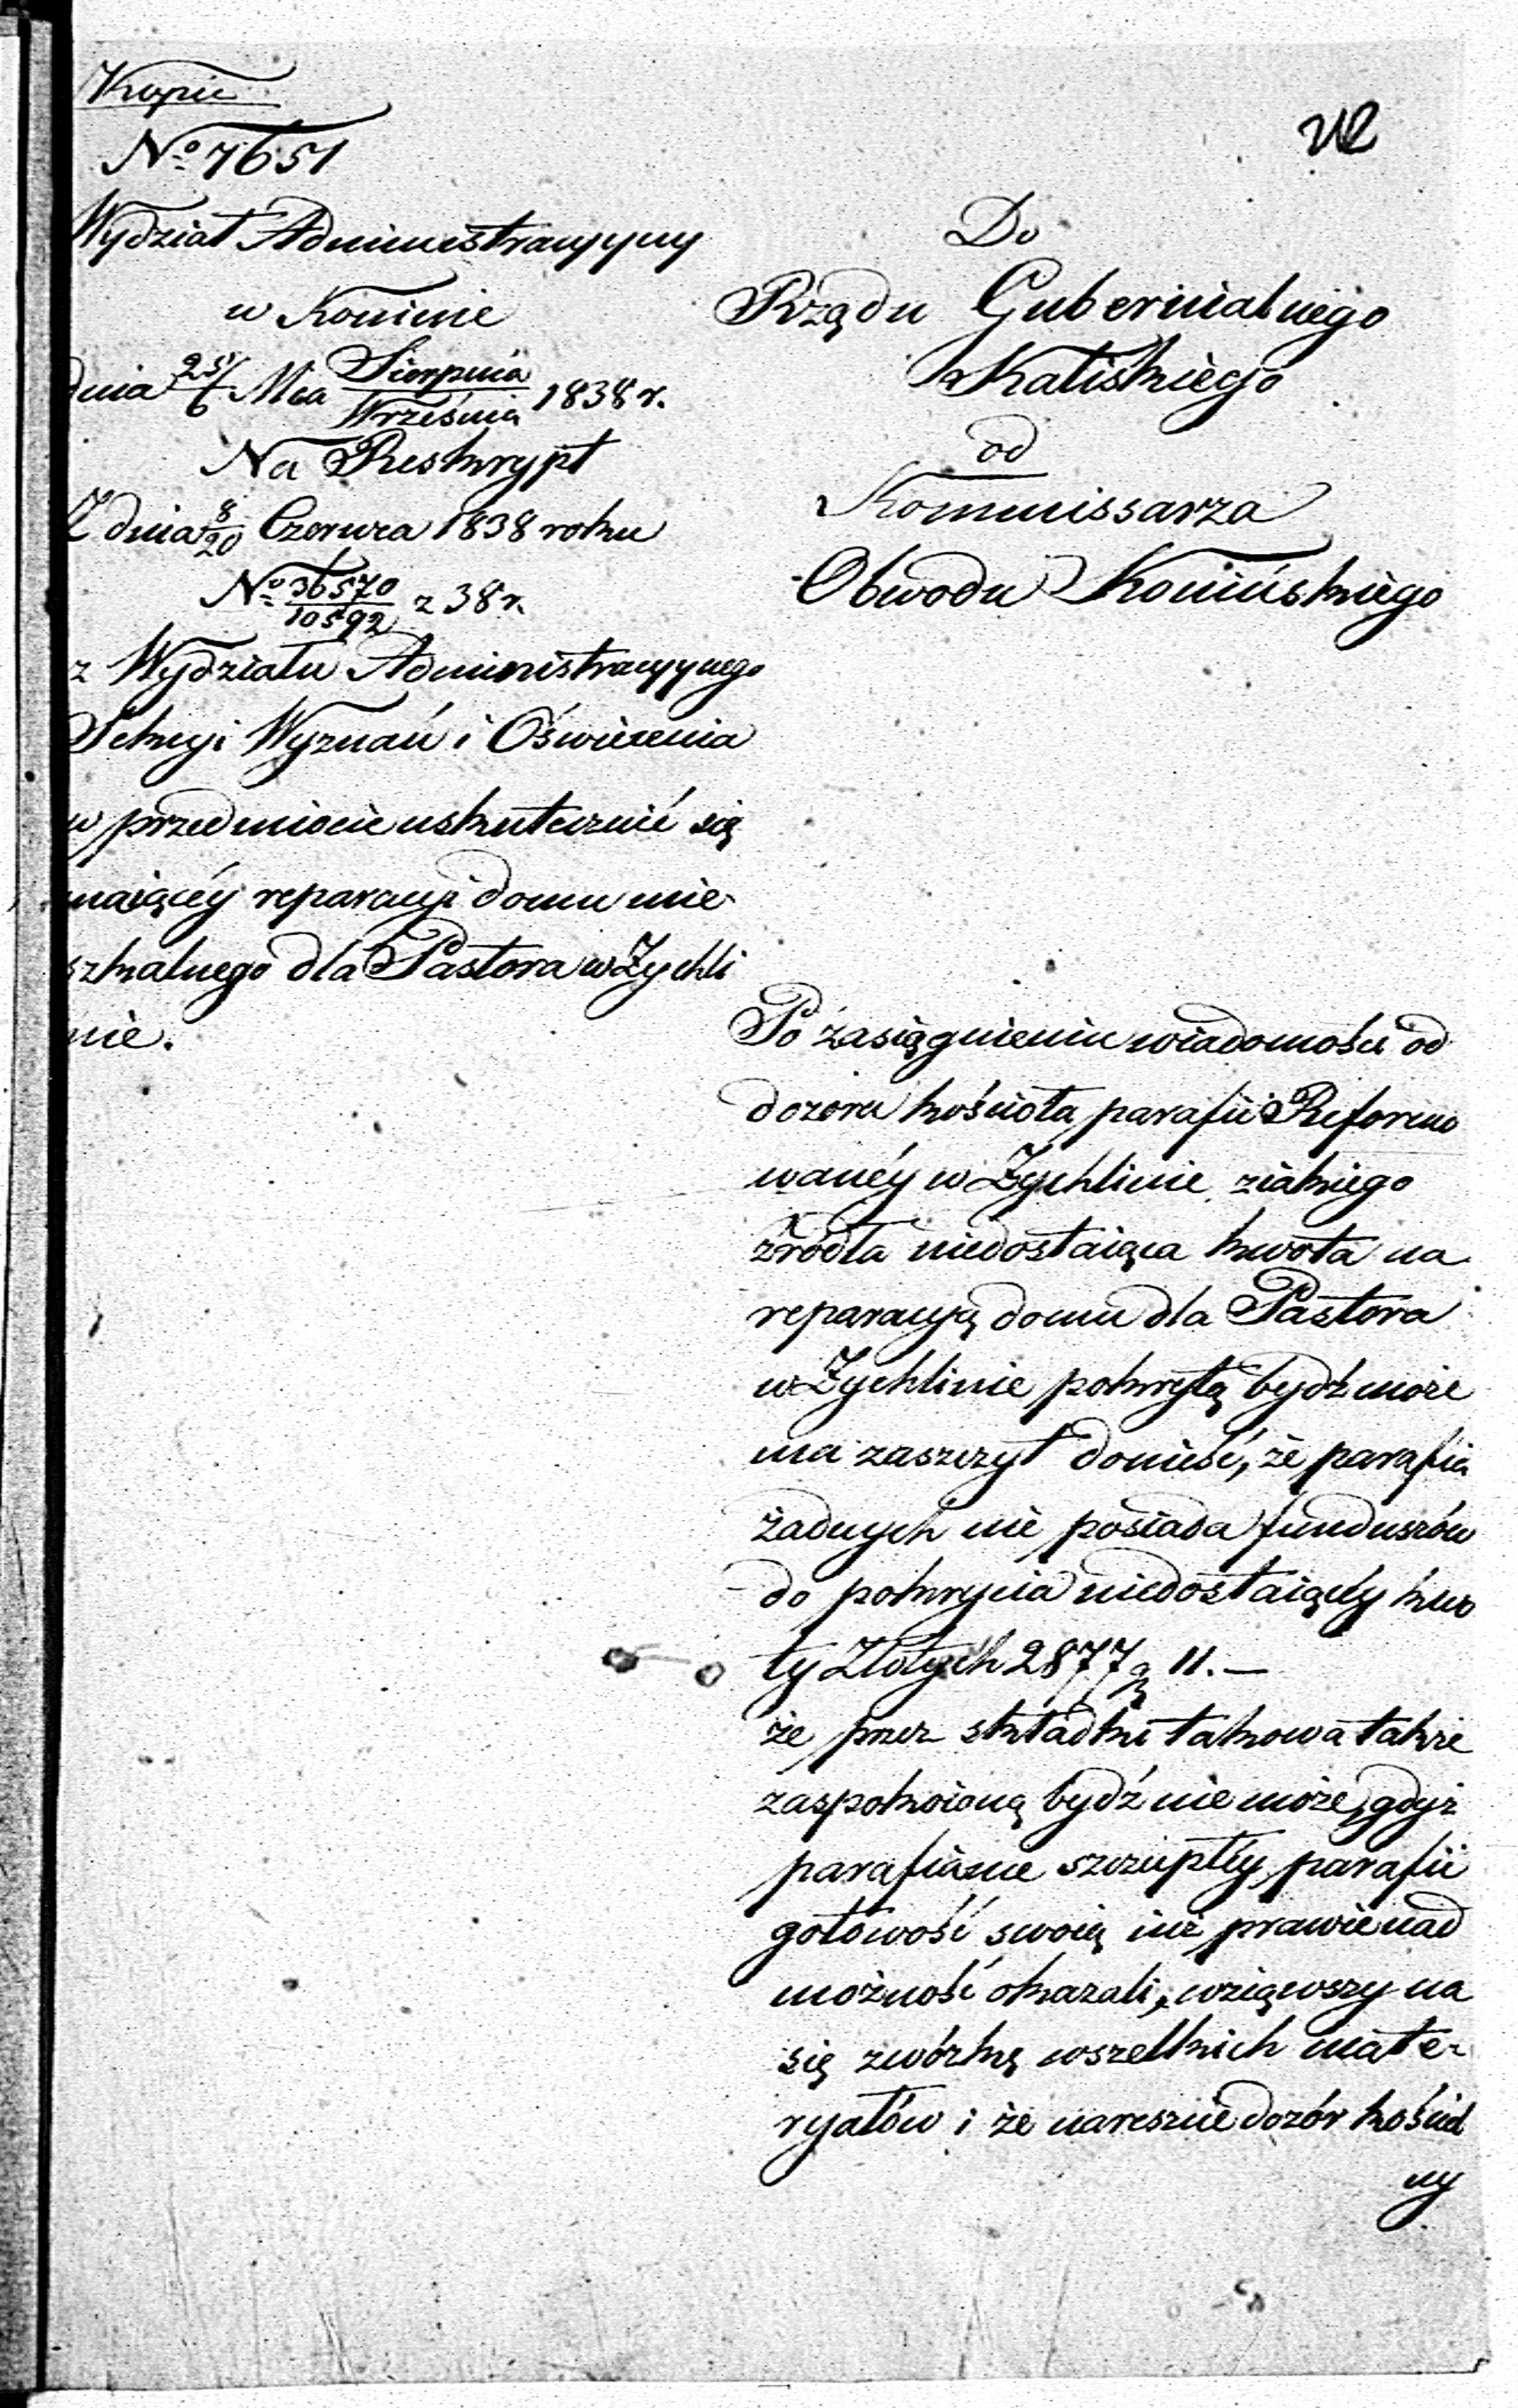 Kopia
No 7651
Wydział Administracyjny
w Koninie
dnia 25/6 Mca Sierpnia/Września 1838 r.
Na Reskrypt
Z dnia 8/20 Czerwca 1838 roku
No 36570/10592 z 38 r.
z Wydziału Administracyjnego
Sekcyi Wyznań i Oświecenia
w przedmiocie uskutecznić się
maiącéy reparacyi domu mie-
szkalnego dla Pastora w Żychli
nie.
Do
Rządu Gubernialnego
Kaliskiego
od
Kommissarza
Obwodu Konińskiego
Po zasiągnieniu wiadomości od
dozoru kościoła parafii Reformo
wanéy w Żychlinie z iakiego
źródła niedostaiąca kwota na
reparacyą domu dla Pastora
w Żychlinie pokrytą bydź może
ma zaszczyt donieść, że parafia
żadnych nie posiada funduszów
do pokrycia niedostaiącéy kwo
ty Złotych 2877 g 11.—
że przez składki takowa także
zaspokoioną bydź nie może, gdyż
parafianie szczupłéy parafii
gotowość swoią iuż prawie nad
możność okazali, wziąwszy na
się zwózkę wszelkich mate-
ryałów i że nareszcie dozór kościel
ny